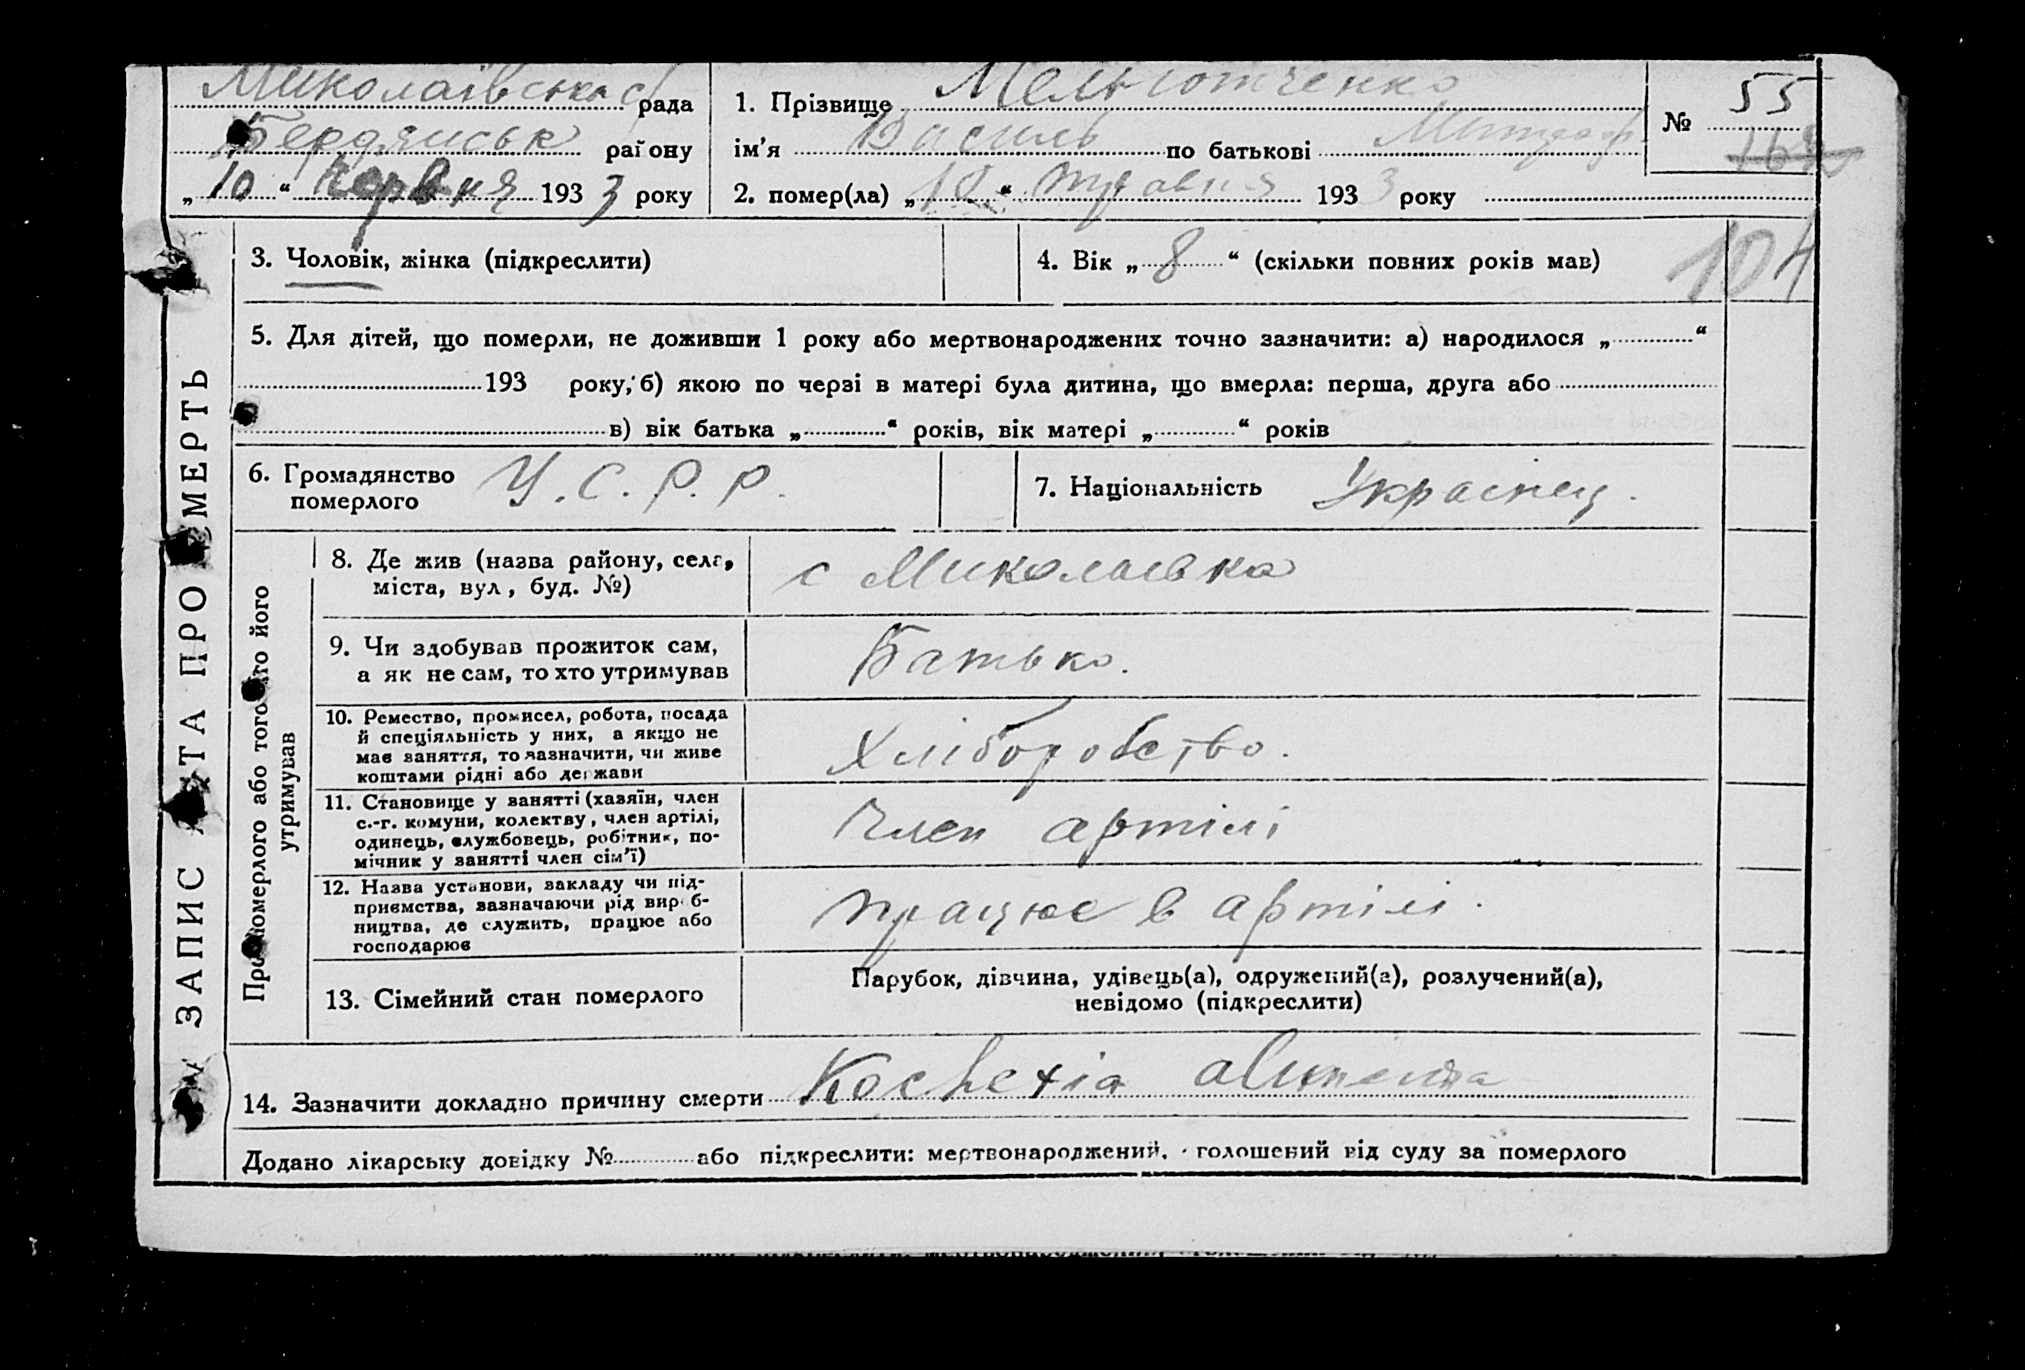 Миколаївська с/рада
Бердянськ району
„10“ Червня 1933 року
1. Прізвище
ім'я Василь по батькові Митроф
2. помер(ла) „10“ травня 1933 року
№ 55
104
3. Чоловік, жінка (підкреслити)
4. Вік „8“ (скільки повних років мав)
5. Для дітей, що померли, не доживши 1 року або мертвонароджених точно зазначити: а) народилося „ “
193 року, б) якою по черзі в матері була дитина, що вмерла: перша, друга або
в) вік батька „ “ років, вік матері „ “ років
6. Громадянство
померлого
У.С.Р.Р.
7. Національність Українец.
ЗАПИС АКТА ПРО СМЕРТЬ
Про померлого або того хто його
утримував
8. Де жив (назва району, села,
міста, вул, буд. №)
с Миколаівка
9. Чи здобував прожиток сам,
а як не сам, то хто утримував
Батько.
10. Ремество, промисел, робота, посада
й спеціяльність у них, а якщо не
має заняття, то зазначити, чи живе
коштами рідні або держави
Хліборобство.
11. Становище у занятті (хазяїн, член
с.-г. комуни, колектву, член артілі,
одинець, службовець, робітник, по-
мічник у занятті член сім'ї)
Член артілі
12. Назва установи, закладу чи під-
приємства, зазначаючи рід вироб-
ництва, де служить, працює або
господарює
працює в артілі.
13. Сімейний стан померлого
Парубок, дівчина, удівець(а), одружений(а), розлучений(а),
невідомо (підкреслити)
14. Зазначити докладно причину смерти
Додано лікарську довідку № або підкреслити: мертвонароджений, голошений від суду за померлого